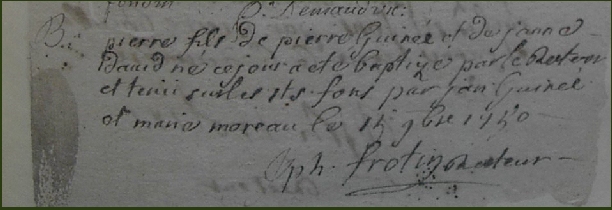 B.
pierre fils de pierre Guinee et de janne
david ne ce jour a eté baptizé par le Recteur
et tenu sur les sts fons par jan Guinee
et marie moreau le 15 9bre 1750
Rph. frotin Recteur